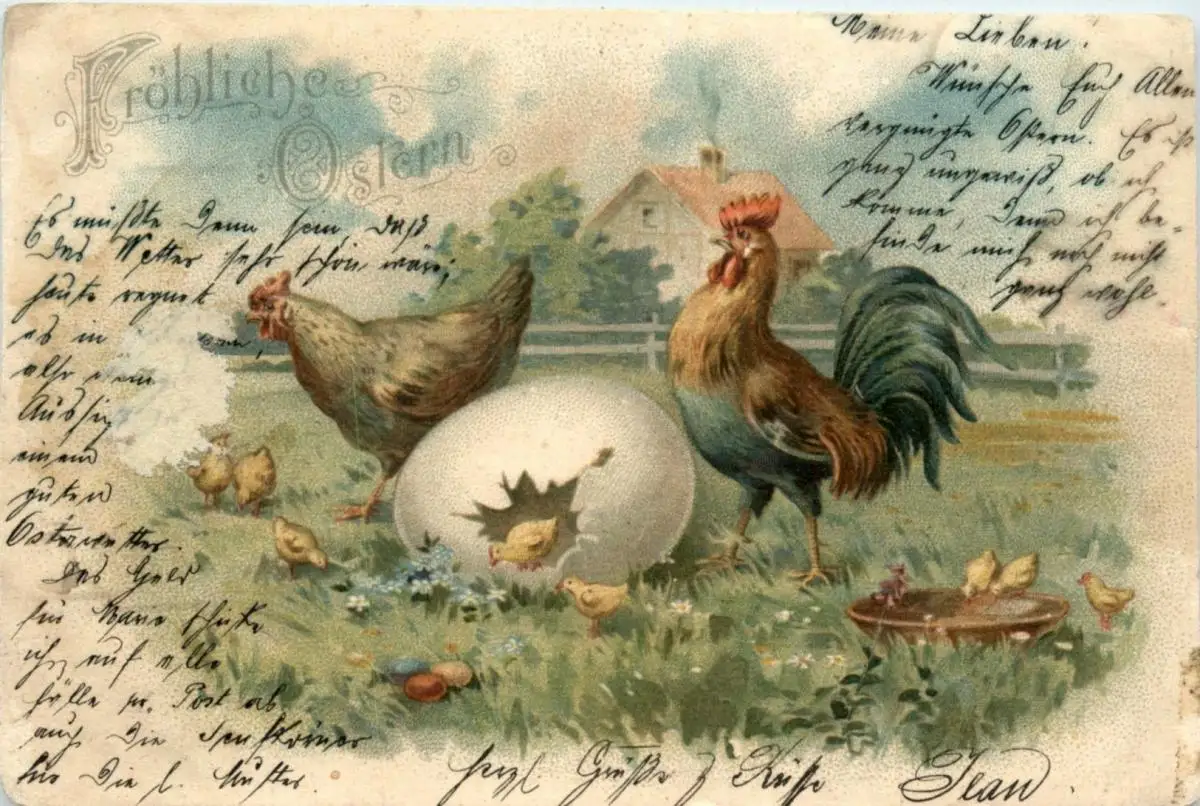 Fröhliche
Ostern
Meine Lieben!
Wünsche Euch Allen
vergnügte Ostern. Es ist
ganz ungewiß, ob ich
komme, denn ich be-
finde mich noch nicht
ganz wohl.
Es müßte denn sein, daß
das Wetter sehr schön wäre;
heute regnet
es in
alle dem
Aussig
einem
guten
Osterwetter.
Das Geld
für Marie schicke
ich auf alle
Fälle pr. Post ab
auch die Senfkörner
für die l. Mutter.
herzl. Grüße & Küsse Jean